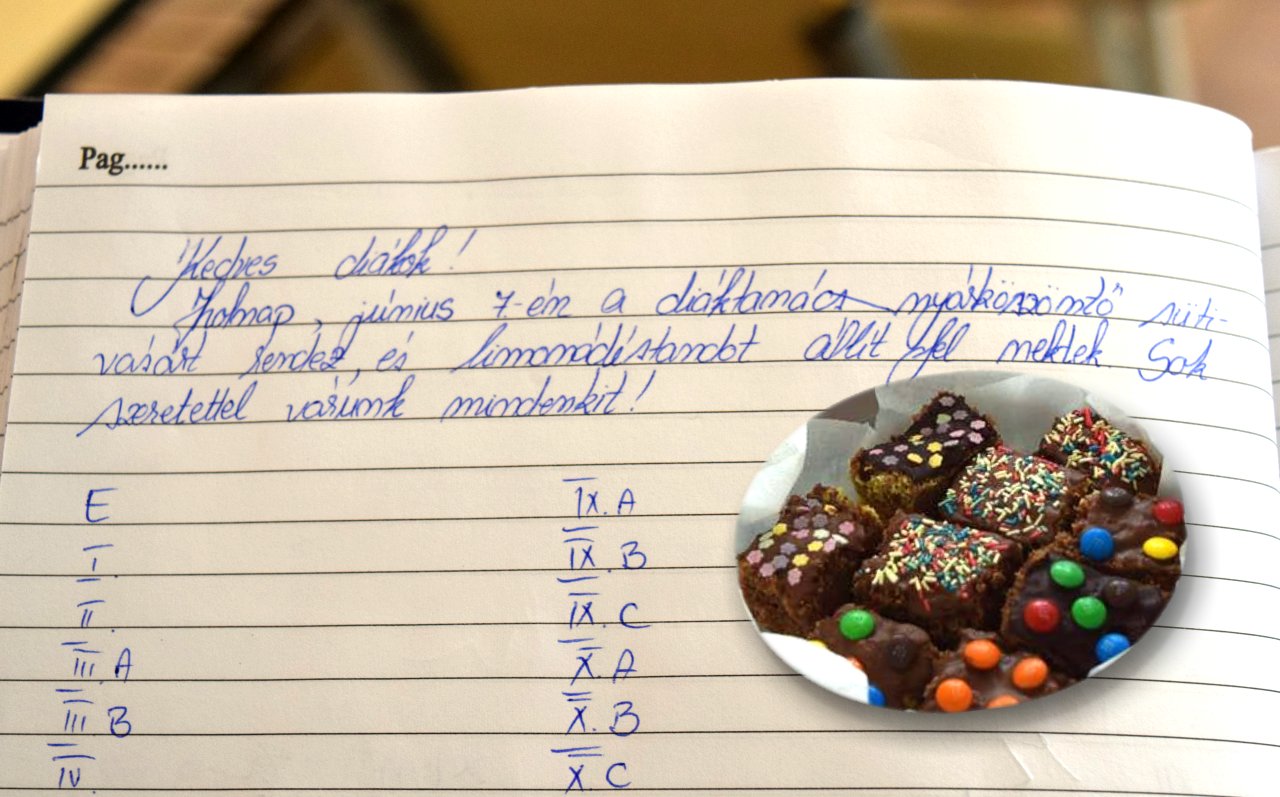 Pag......
Kedves diákok!
Holnap, június 7-én a diáktanács nyárköszöntő süti-
vásárt rendez, és limonádéstandot állít fel nektek. Sok
szeretettel várunk mindenkit!
E IX. A
I. IX. B
II. IX. C
III. A X. A
III B X. B
IV. X. C